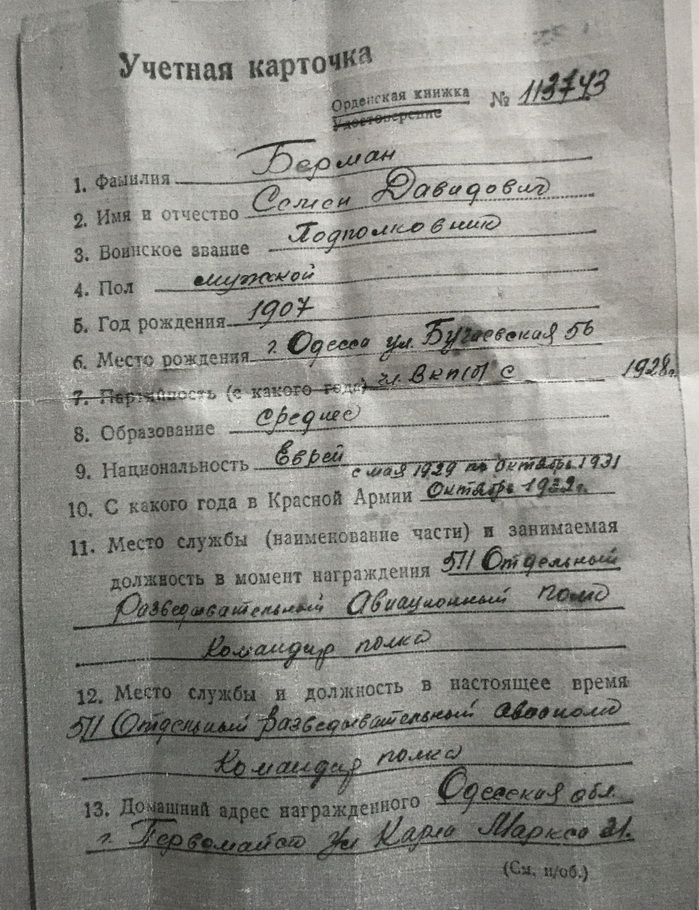 Учетная карточка
Орденская книжка № 113743
Удостоверение
1. Фамилия Берман
2. Имя и отчество Семен Давидович
3. Воинское звание Подполковник
4. Пол мужской
5. Год рождения 1907
6. Место рождения г. Одесса ул. Бугаевская 56
7. Партийность (с какого года) чл. ВКП(б) с 1928г.
8. Образование среднее
9. Национальность Еврей
с мая 1929 по октябрь 1931
10. С какого года в Красной Армии Октябрь 1932г.
11. Место службы (наименование части) и занимаемая
должность в момент награждения 511 Отдельный
Разведывательный Авиационный полк
Командир полка
12. Место службы и должность в настоящее время
511 Отдельный разведывательный авиополк
Командир полка
13. Домашний адрес награжденного Одесская обл.
г. Первомайск ул Карла Маркса 21.
(См. н/об.)